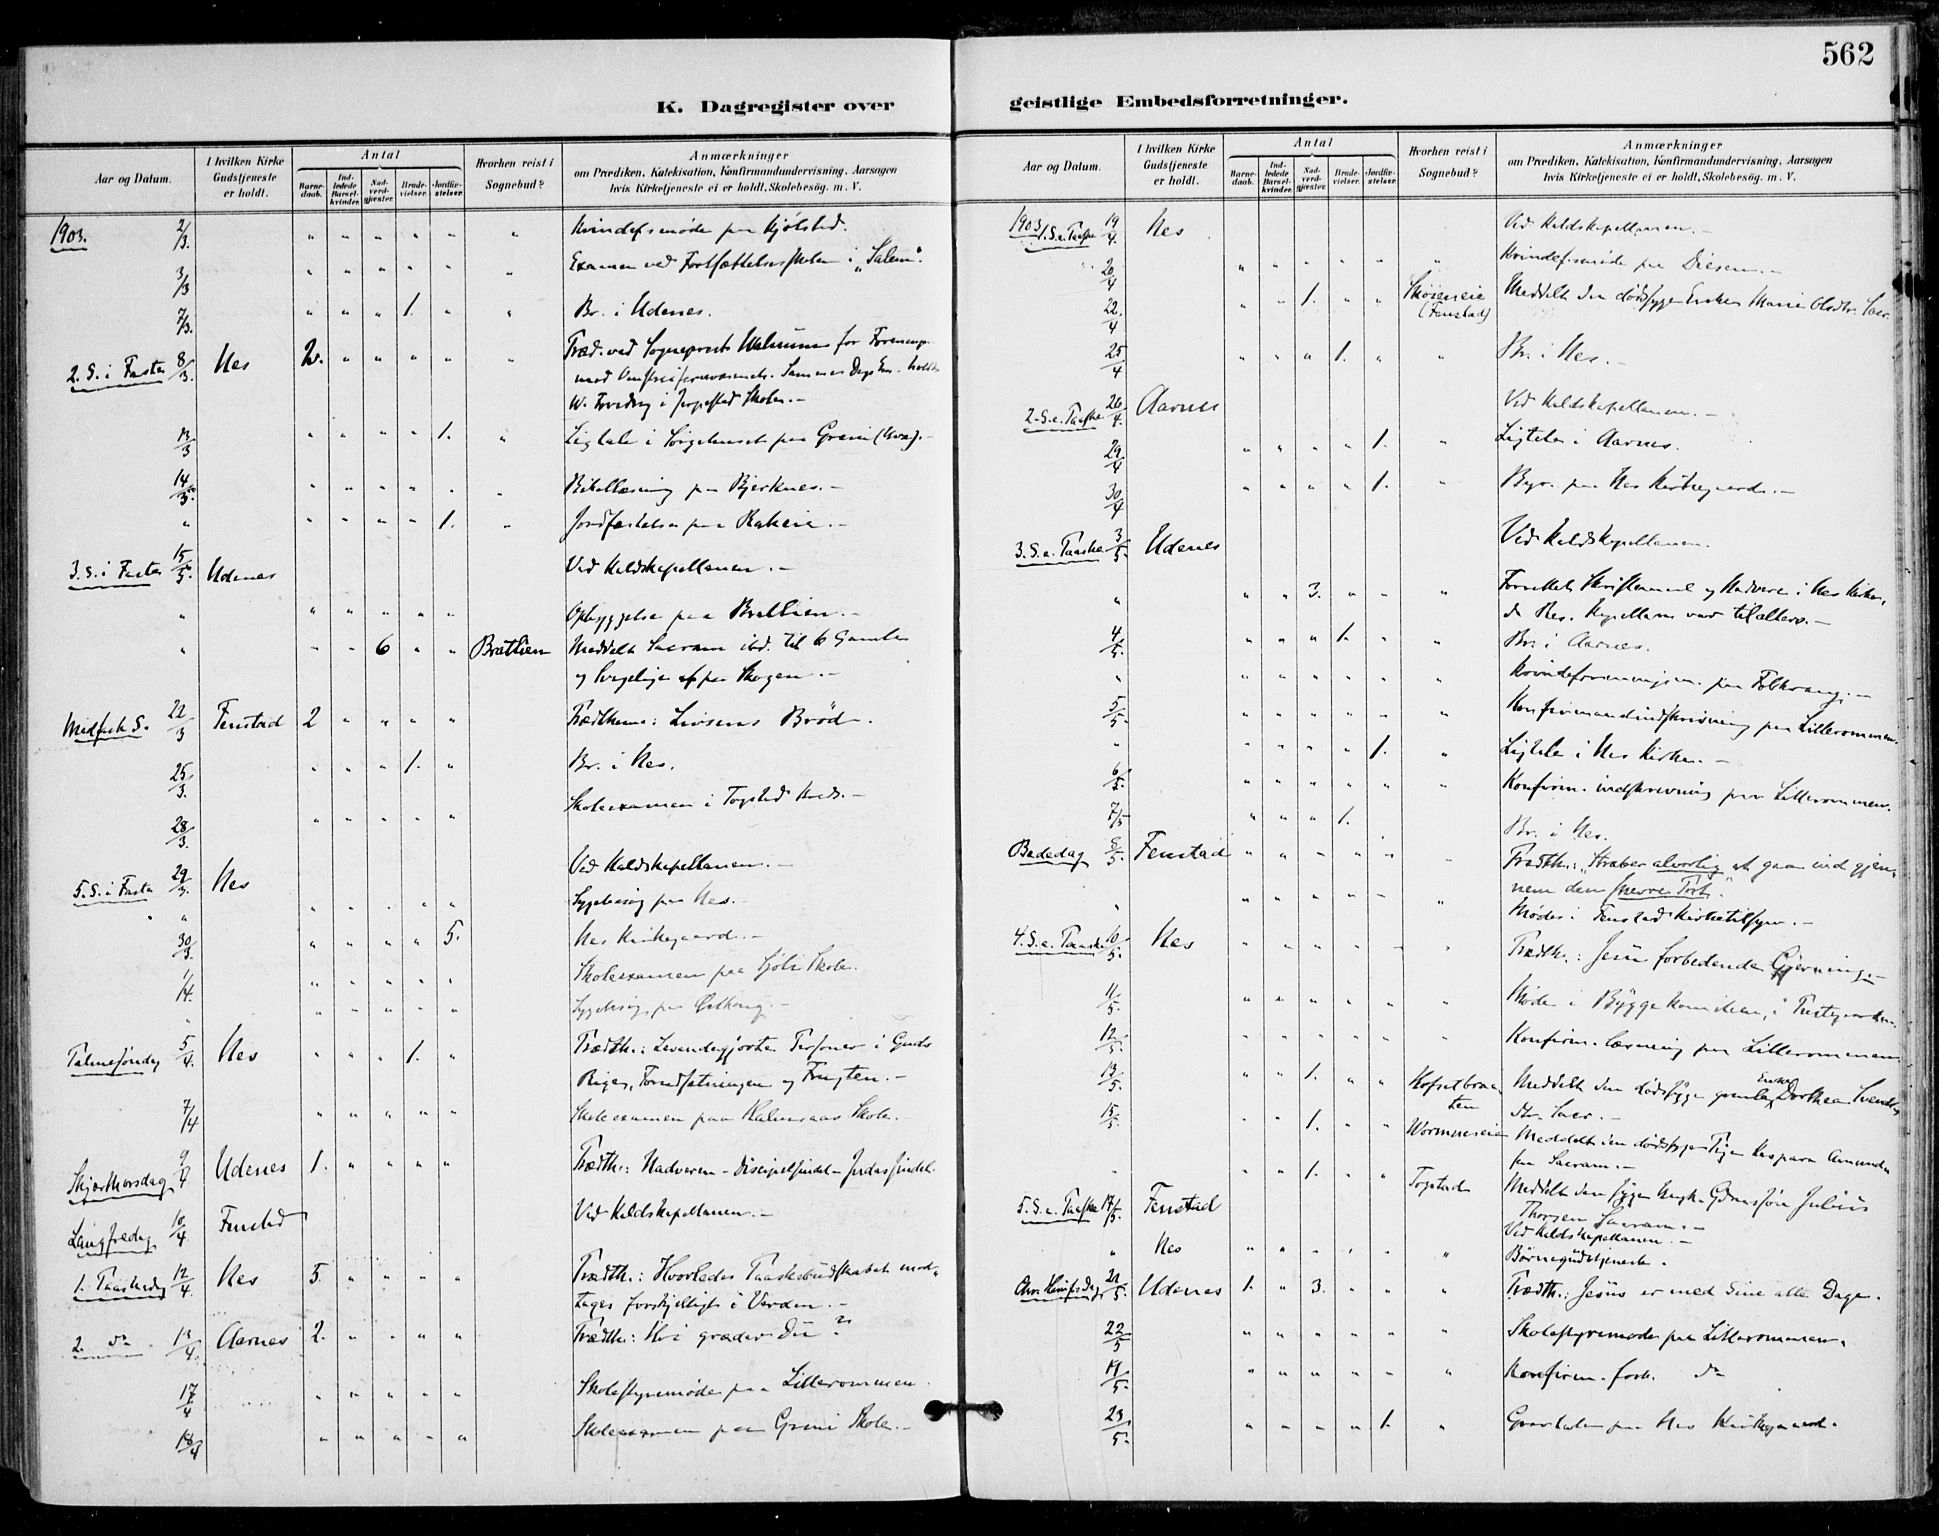 562
K. Dagregister over
geistlige Embedsforretninger.
Aar og Datum.
I hvilken Kirke Gudstjeneste er holdt.
Antal
Barnedaab.
Indledede Barselkvinder.
Nadverdgjester.
Brudevielser.
Jordfæstelser.
Hvorhen reist i Sognebud?
Anmærkninger
om Prædiken, Katekisation, Konfirmandundervisning, Aarsagen
hvis Kirketjeneste ei er holdt, Skolebesøg. m. V.
1903. 2/3. " " " " " " Kvindefsmøde paa Kjølstad.
3/3 " " " " " " Examen ved Fortsættelsesskolen i "Salem".
7/3. " " " 1. " " Br. i Udenes.
2. S. i Faste 8/3. Nes 2. " " " " " Præd. ved Sogneprest
W. Foredrag i Skole.–
13/3 " " " " 1. " Ligtale i Sørgehuset paa Greni
14/3. " " " " " " Bibellæsning paa Bjerknes.–
" " " " " 1. " Jordfæstelse paa Rakeie.–
3. S. i Faste 15/3. Udenes Ved Kaldskapellanen.–
" " " " " " Opbyggelse paa Brattlien.–
" " " 6 " " Brattlien Meddelt Sacram ibd. til 6 Gamle
og Svagelige paa Skogen.–
Midfaste S. 22/3 Fenstad 2 " " " " Prædthema: Livsens Brød.
25/3. " " " 1. " Br. i Nes.
28/3. " " " " " Skoleexamen i Togstad Kreds.–
5. S. i Faste 29/3. Nes Ved Kaldskapellanen.–
" " " " " " Sygebesøg paa Nes.–
30/3. " " " " 5. Nes Kirkegaard.–
1/4. " " " " " Skoleexamen paa Skole.
" " " " " " Sygebesøg paa
Palmesøndag 5/4. Nes " " " 1. " Prædth.: Levendegjorte Personer i Guds
Riges, Forudsætningen og Frugten.–
7/4 " " " " " Skoleexamen paa Skole.–
Skjærthorsdag 9/4 Udenes 1. " " " " Prædth.: Nadveren – Discipelsindet – Judassindet.
Langfredag 10/4 Fenstad Ved Kaldskapellanen.–
1. Paaskedag 12/4 Nes 5. " " " " Prædth.: Hvorledes Paaskebudskabet mod-
tages forskjelligt i Verden.–
2. do 13/4. Aarnes 2. " " " " Prædth.: Hvi græder Du?
17/4 " " " " " Skolestyremøde paa Lillerommen.
18/4 " " " " " Skoleexamen paa Greni Skole.–
Aar og Datum.
I hvilken Kirke Gudstjeneste er holdt.
Antal
Barnedaab.
Indledede Barselkvinder.
Nadverdgjester.
Brudevielser.
Jordfæstelser.
Hvorhen reist i Sognebud?
Anmærkninger
om Prædiken, Katekisation, Konfirmandundervisning, Aarsagen
hvis Kirketjeneste ei er holdt, Skolebesøg, m. V.
1903 1. S. e. Paaske 19/4. Nes Ved Kaldskapellanen.–
20/4 " " " " " " Kvindefsmøde paa Diesen.–
22/4 " " 1. " " Skøieneie (Fenstad) Meddelt den dødssyge Enke Marie Olsdtr. Sacr.
25/4 " " " 1. " " Br. i Nes.–
2. S. e. Paaske 26/4. Aarnes Ved Kaldskapellanen.–
29/4 " " " " 1. " Ligtale i Aarnes.
30/4 " " " " 1. " Begr. paa Nes Kirkegaard.–
3. S. e. Paaske 3/5. Udenes Ved Kaldskapellanen.
" " " 3. " " " Forrettet Skriftemaal og Nadvere i Nes Kirke,
da Res. Kapellanen var til alters.–
4/5. " " " 1. " " Br. i Aarnes.
" " " " " " " Kvindeforeningsm. paa Folkvang.–
5/5. " " " " " " Konfirmandindskrivning paa Lillerommen.
" " " " " 1. " Ligtale i Nes Kirke.–
6/5. " " " " " " Konfirm. indskrivning paa Lillerommen.
7/5 " " " 1. Br. i Nes.
Bededag 8/5. Fenstad " " " " " " Prædth.: "Stræber alvorlig at gaa ind gjen-
nem den snevre Port."
" " " " " " " Møde i Fenstad Kirketilsyn.–
4. S. e. Paaske 10/5. Nes " " " " " " Prædth.: Jesu forbedende Gjerning.–
11/5. " " " " " " Møde i Byggekomiteen, i Prestegaarden.
12/5. " " " " " " Konfirm. læsning paa Lillerommen
13/5. " " 1. " " Meddelt den dødssyge gamle Enke Dorthea
dtr. Sacr.–
15/5. " " 1. " " Wormneseie Meddelt den dødssyge Pige Kaspara
Sacram.–
" " " 1. " " Togstad Meddelt den syge Ungk. Gdmssøn Julius
Thorsen Sacram.–
5. S. e. Paaske 17/5. Fenstad Ved Kaldskapellanen.–
" Nes " " " " " " Børnegudstjeneste.
Chr. Himfsdag 21/5. Udenes 1. " 3. " " " Prædth.: Jesus er med Sine alle Dage.
22/5 " " " " " " Skolestyremøde paa Lillerommen.
19/5. " " " " " " Konfirm. forb. do
23/5. " " " " 1. " Gravtale paa Nes Kirkegaard.